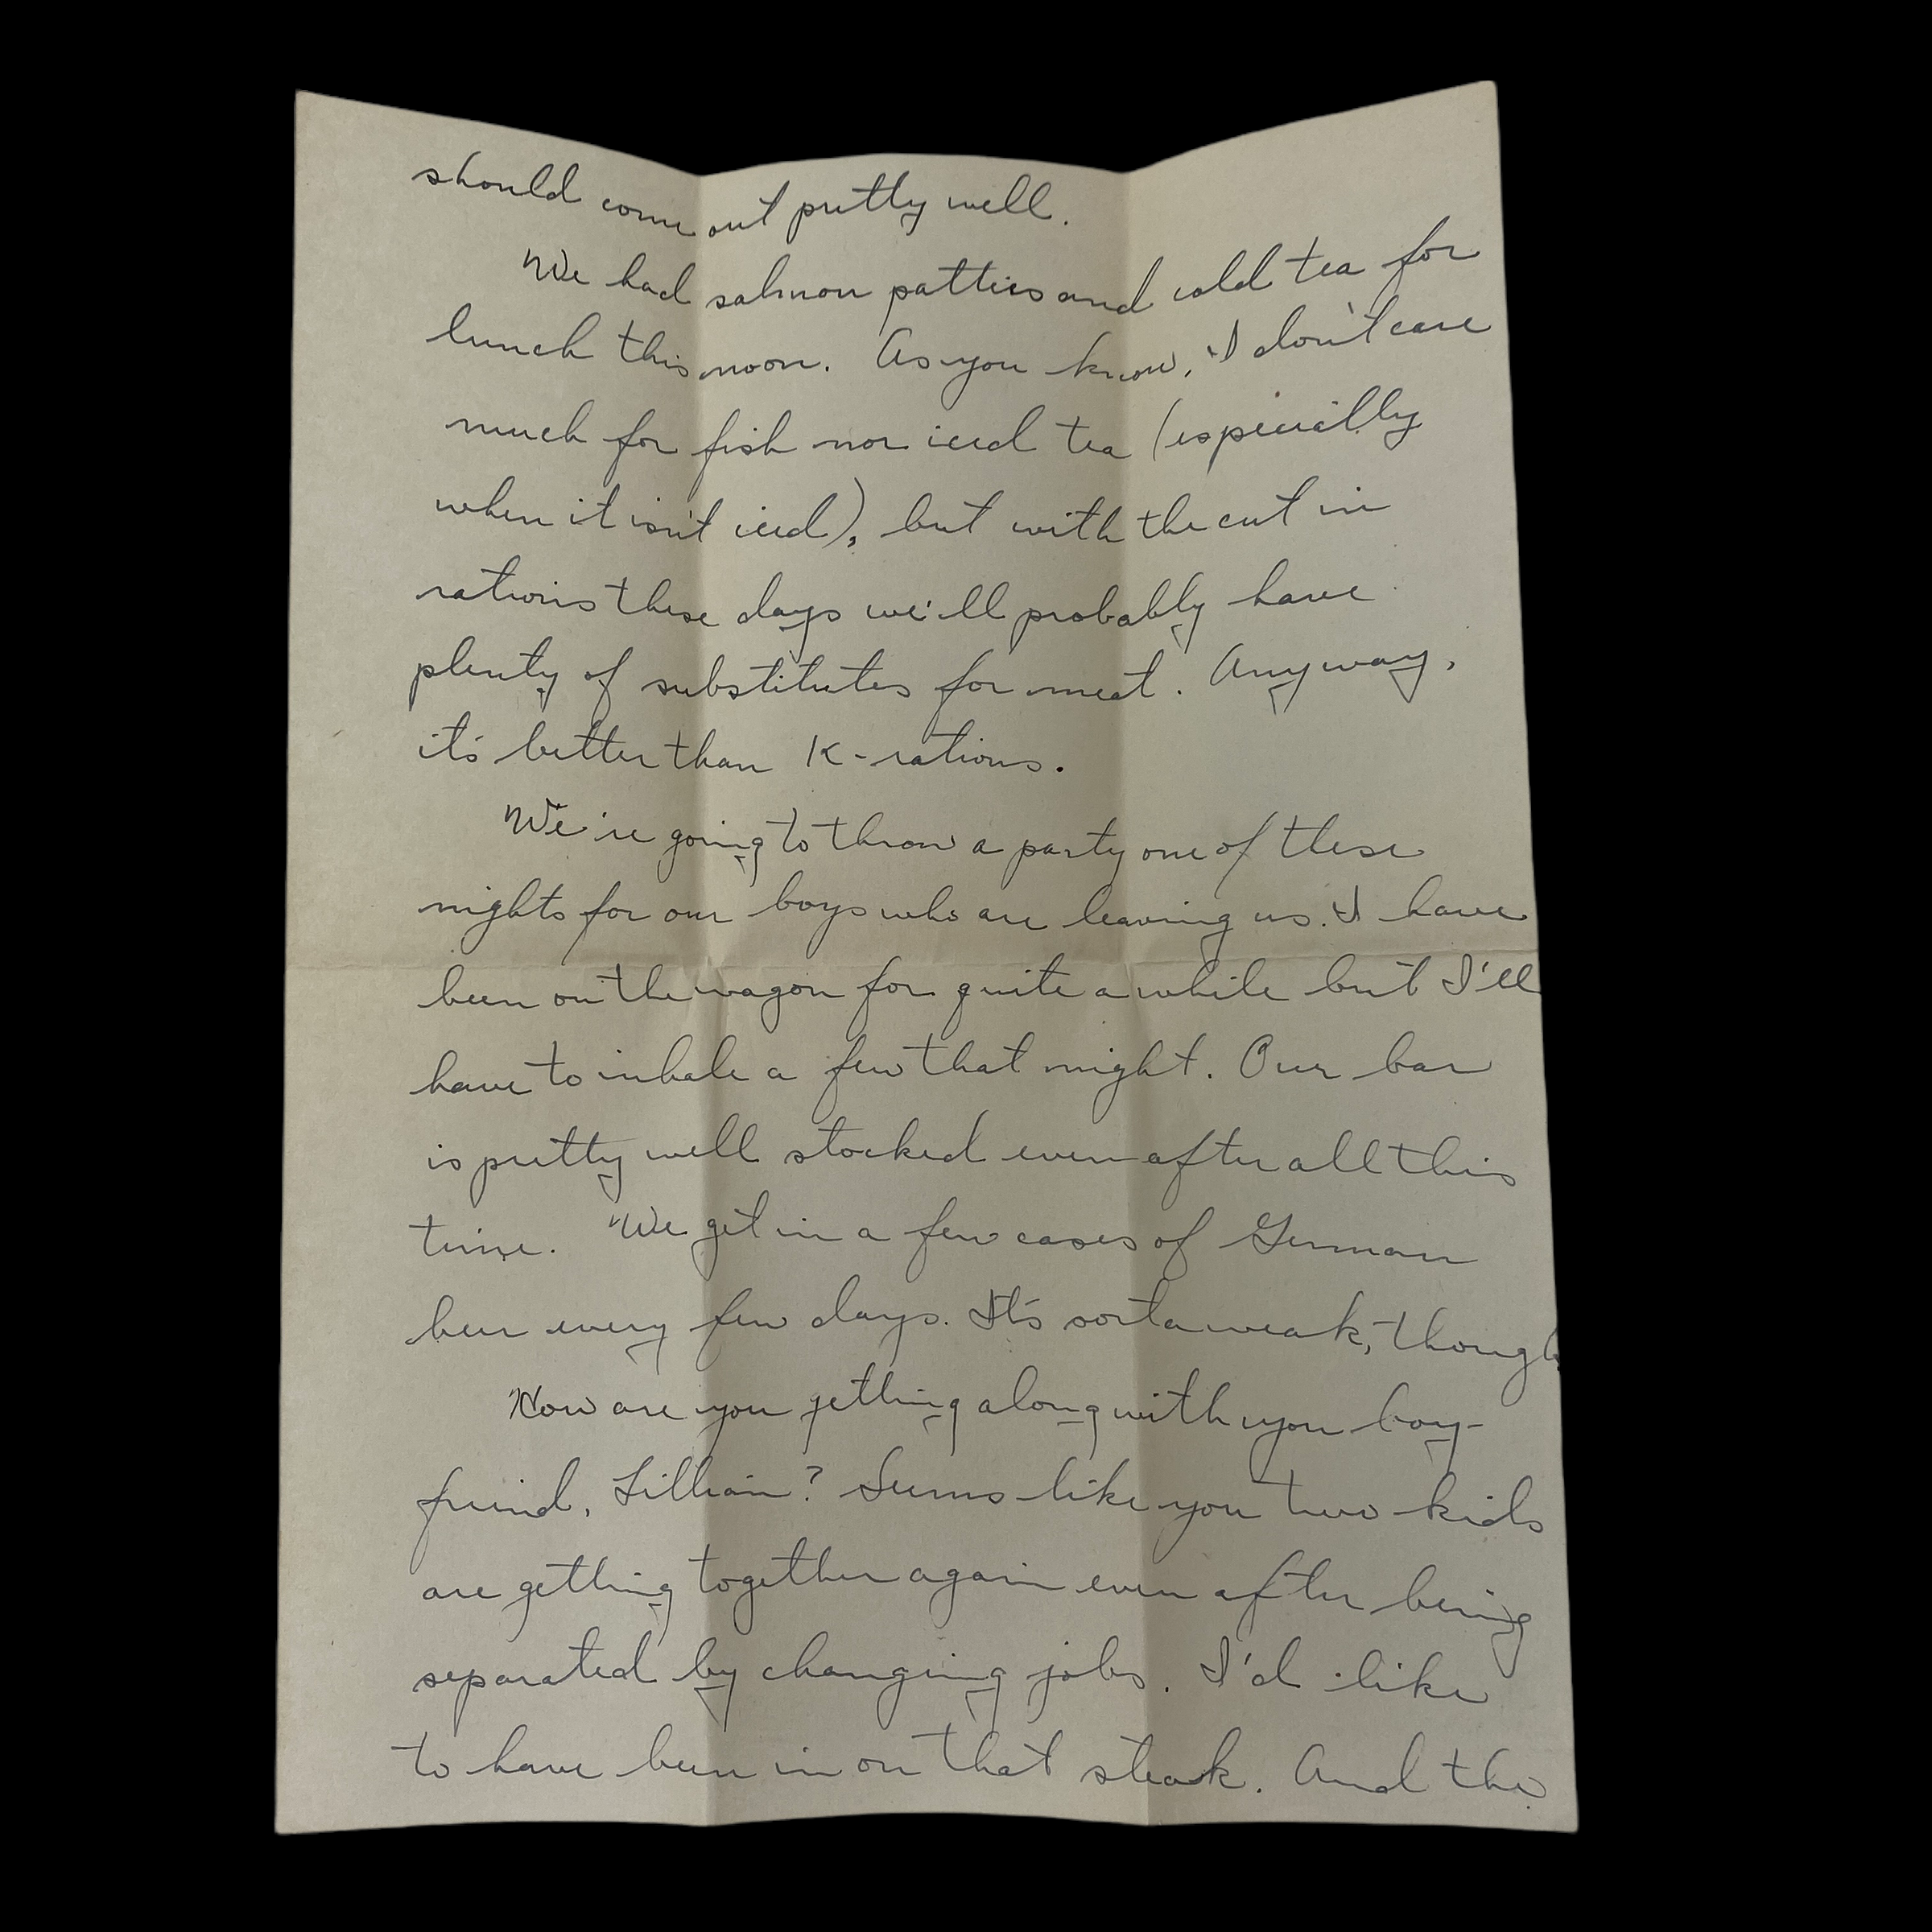 should come out pretty well.
We had salmon patties and cold tea for
lunch this noon. As you know, I don't care
much for fish nor iced tea (especially
when it isn't iced), but with the cut in
rations these days we'll probably have
plenty of substitutes for meat. Anyway,
it's better than K-rations.
We're going to throw a party one of these
nights for our boys who are leaving us. I have
been on the wagon for quite a while but I'll
have to inhale a few that night. Our bar
is pretty well stocked even after all this
time. We get in a few cases of German
beer every few days. It's sorta weak, though.
How are you getting along with you boy-
friend, Lillian? Seems like you two kids
are getting together again even after being
separated by changing jobs. I'd like
to have been in on that steak. And the